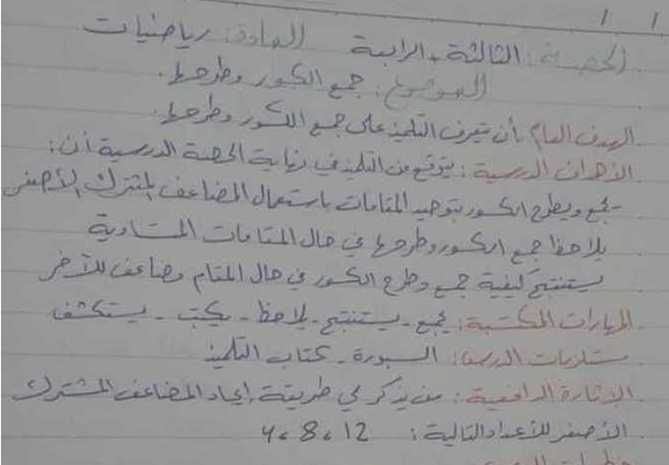 الحصة: الثالثة + الرابعة المادة: رياضيات
الموضوع: جمع الكسور وطرحها.
الهدف العام: أن يتعرف التلميذ على جمع الكسور وطرحها.
الأهداف الدرسية: يتوقع من التلميذ في نهاية الحصة الدرسية أن:
يجمع ويطرح الكسور بتوحيد المقامات باستعمال المضاعف المشترك الأصغر
يلاحظ جمع الكسور وطرحها في حال المقامات المتساوية
يستنتج كيفية جمع وطرح الكسور في حال المقام مضاعف للآخر
المهارات المكتسبة: يجمع - يستنتج - يلاحظ - يكتب - يستكشف
مستلزمات الدرس: السبورة - كتاب التلميذ
الإثارة الدافعية: من يذكر لي طريقة إيجاد المضاعف المشترك
الأصغر للأعداد التالية: 12 ، 8 ، 4